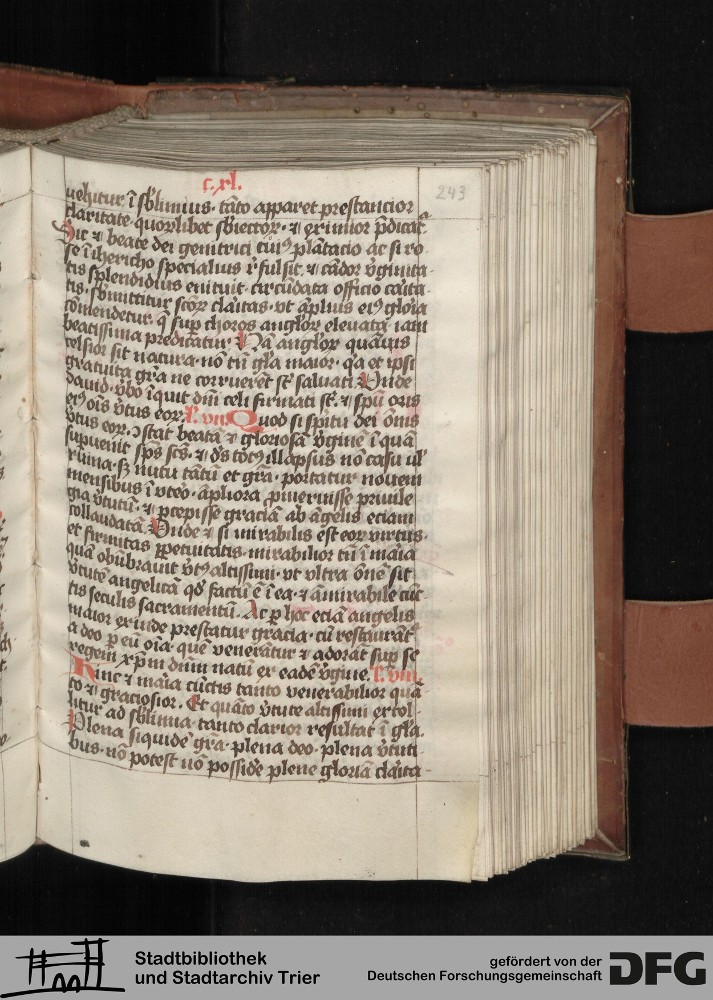 c. xl.
243
uehitur ī sblimius · tāto apparet prestancior
claritate · quorlibet sbiector · ⁊ eximior p̄dicat᷑
Sic ⁊ beate dei genitrici ac si ro
se ī ihericho specialius r̄fulsit · ⁊ cādor v̄ginita-
tis splendidius enituit · circūdata officio caīta-
tis · sbmittitur scōr claītas · vt āplius eiꝰ gloīa
cōmendetur · q̄ sup̄ choros anglōr eleuata iam
beatissima predicatur · Nā anglōr quāuis
celsior sit natura · nō tn̄ gl̄a maior · q̄a et ipsi
gratuita gr̄a ne corruerēt st̄ saluati Vnde
dauid · v̄bo īquit dnī celi firmati st̄ · ⁊ sp̄u oris
eiꝰ oīs v̄tus eor̄ L. vii. Quod si sp̄itu dei ōnis
v̄tus eor̄ · ↄstat beatā ⁊ gloriosā v̄ginē ī quā
supuenit sp̄s sc̄s · ⁊ dˢ totꝰ illapsus nō casu ul̓
ruina · sꝫ nutu tātū et gr̄a · portatur nouem
mensibus ī vtēo · āpliora priuile
gia v̄tutū · ⁊ p̄cepisse graciā ab āgelis eciam
collaudatā Vnde ⁊ si mirabilis est eor̄ virtus ·
et firmitas ꝑpetuitatis · mirabilior tn̄ ī maīa
quā obūbrauit v̄tꝰ altissimi · vt vltra ōnē sit
v̄tutē angelicā qd̓ factū ē ī ea · ⁊ āmirabile cūc
tis seculis sacramentū . Ac ꝑ hoc eciā angelis
maior exinde prestatur gracia · cū restaurāt᷑
a deo ꝑ eū oīa · quē venerātur ⁊ adorāt sup̄ se
regem xp̄m dnm̄ natū ex eadē v̄gine . L. viii.
Hinc ⁊ maīa cūctis tanto venerabilior quā
to ⁊ graciosior . Et quāto v̄tute altissimi extol-
litur ad sblimia · tanto clarior resultat ī gl̄a.
Plena siquidē gr̄a · plena deo · plena v̄tuti-
bus · nō potest nō possidē plene gloriā claīta-
Stadtbibliothek
und Stadtarchiv Trier
gefördert von der
Deutschen Forschungsgemeinschaft
DFG